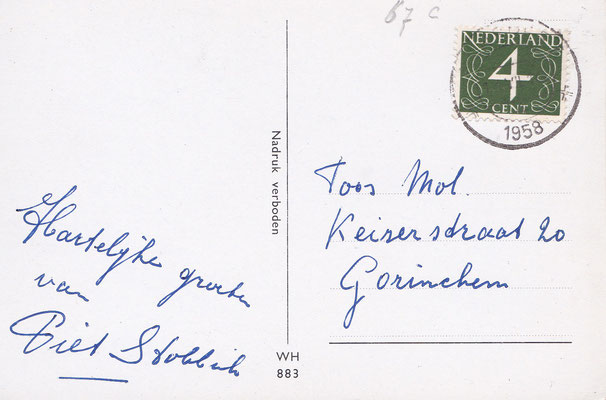 67 c
NEDERLAND
4
CENT
1958
Nadruk verboden
Toos Mol.
Keizerstraat 20
Gorinchem
Hartelijke groeten
van
Piet
WH
883